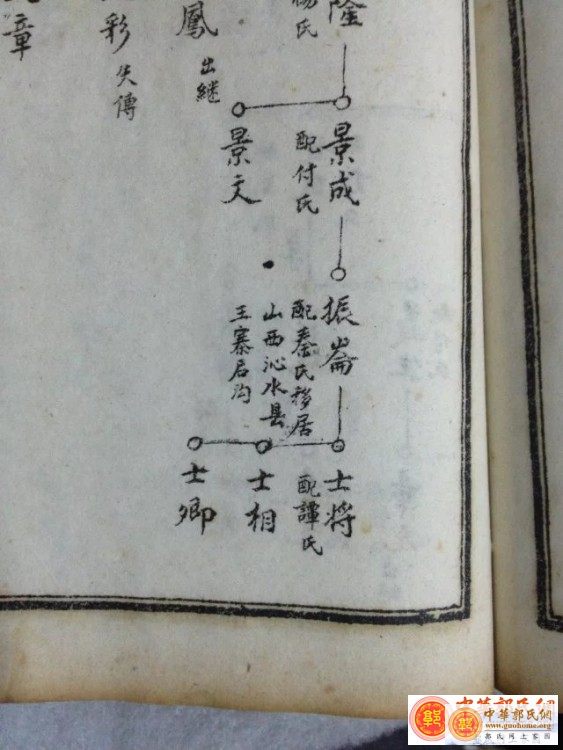 隆
楊氏
鳳
出継
彩
失傳
章
景成
配付氏
景文
振崙
配秦氏移居
山西沁水县
王寨后沟
士将
配譚氏
士相
士卿
中華郭氏網
www.guohome.org
郭氏网上家园